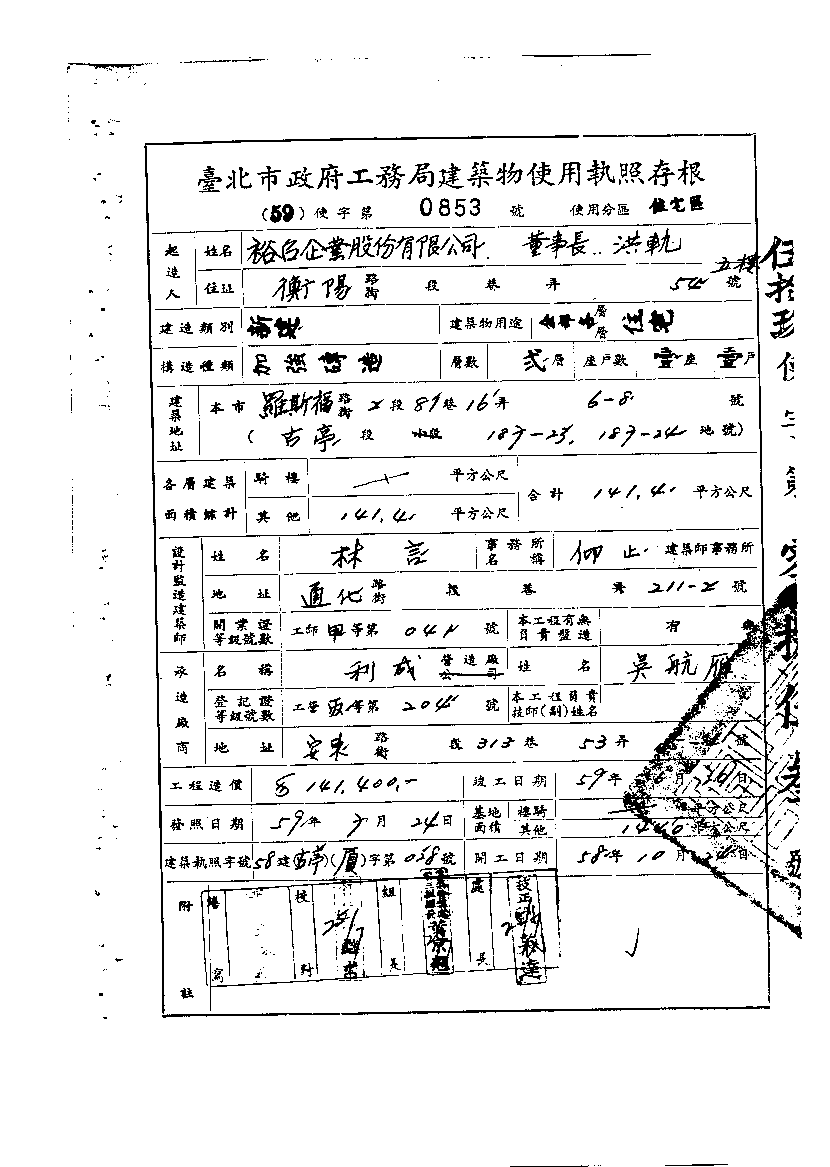 臺北市政府工務局建築物使用執照存根
(59)使字第 0853 號 使用分區 住宅區
起造人 姓名 裕台企業股份有限公司. 董事長..洪軌
住址 衡陽 路街 段 巷 弄 54 號 五樓
建造類別 新建 建築物用途 層層 住宅
構造種類 加強磚造 層數 弍層 座戶數 壹座 壹戶
建築地址 本市 羅斯福 路街 段 89巷 16弄 6-8 號
(古亭 段 小段 187-23, 187-24 地號)
各層建築面積總計 騎樓 平方公尺 合計 141.4 平方公尺
其他 141.4 平方公尺
設計監造建築師 姓名 林 事務所名稱 建築師事務所
地址 通化 路街 段 巷 弄 211-2 號
開業證等級號數 工師甲等第 041 號 本工程有無負責監造 有
承造廠商 名稱 利成 營造廠公司 姓名 吳航雁
登記證等級號數 工營 等第 204 號 本工程負責技師(副)姓名
地址 安東 路街 段 313巷 53弄 號
工程造價 141,400.- 竣工日期 59年 月 日
發照日期 59年 7月 24日 基地面積 樓騎 平方公尺
其他 平方公尺
建築執照字號 58建(古亭)( )字第028號 開工日期 58年10月 日
附註 繕寫 校對 組長 處長
伍拾玖使字第
號